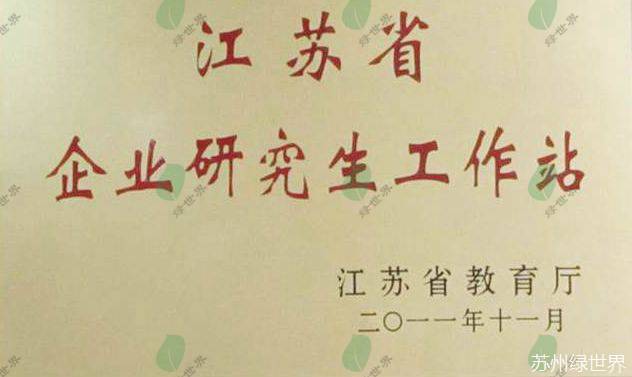 江苏省
企业研究生工作站
江苏省教育厅
二〇一一年十一月
苏州绿世界
绿世界
绿世界
绿世界
绿世界
绿世界
绿世界
绿世界
绿世界
绿世界